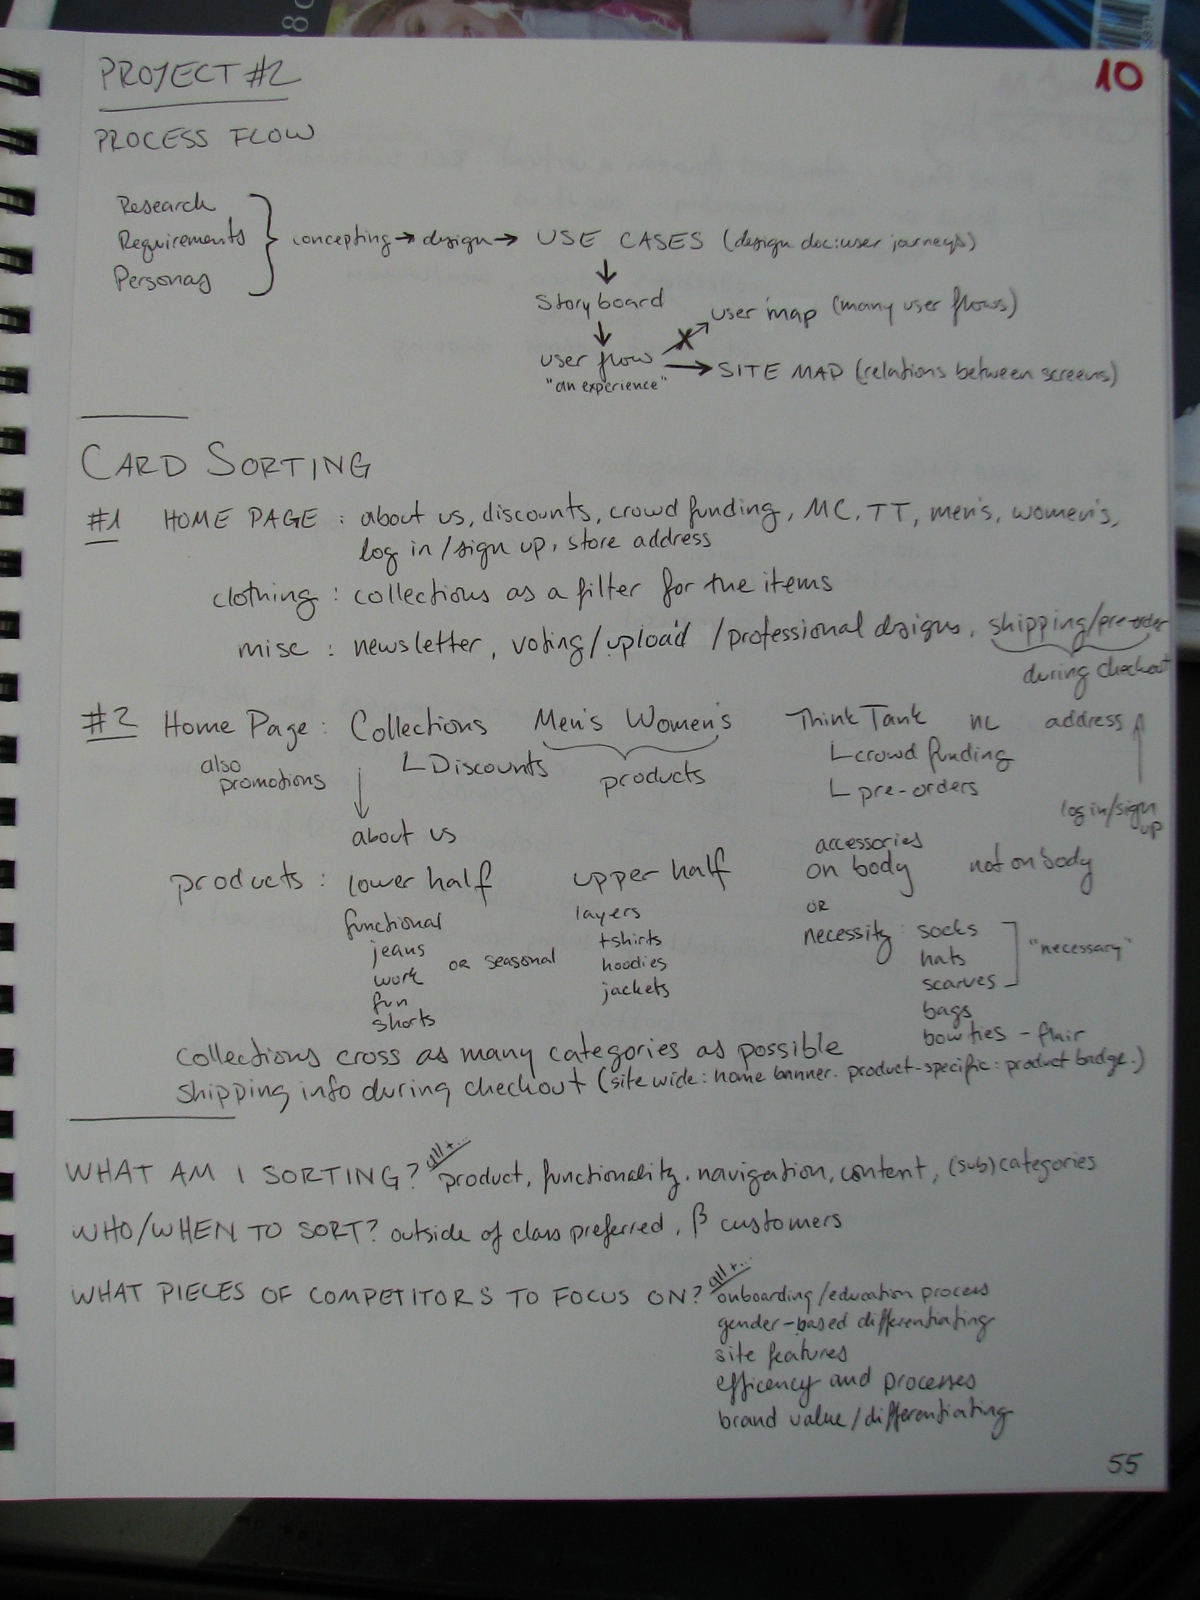 PROJECT #2
10
PROCESS FLOW
Research
Requirements
Personas
concepting → design → USE CASES (design doc: user journeys)
Storyboard
user map (many user flows)
X
user flow
"an experience"
SITE MAP (relations between screens)
CARD SORTING
#1 HOME PAGE : about us, discounts, crowd funding, MC, TT, men's, women's,
log in / sign up, store address
clothing : collections as a filter for the items
misc : newsletter, voting/upload /professional designs, shipping/pre-order
during checkout
#2 Home Page : Collections Men's Women's Think Tank NL address
also
promotions
Discounts
products
crowd funding
pre-orders
log in/sign
up
about us
products : lower half upper half accessories
on body not on body
OR
functional
jeans
work OR seasonal
fun
shorts
layers
tshirts
hoodies
jackets
necessity : socks
hats
scarves
"necessary"
bags
bowties - flair
collections cross as many categories as possible
shipping info during checkout (site wide: home banner. product-specific: product badge.)
WHAT AM I SORTING? all +... product, functionality, navigation, content, (sub)categories
WHO/WHEN TO SORT? outside of class preferred, β customers
WHAT PIECES OF COMPETITORS TO FOCUS ON? all +... onboarding/education process
gender-based differentiating
site features
efficency and processes
brand value/differentiating
55